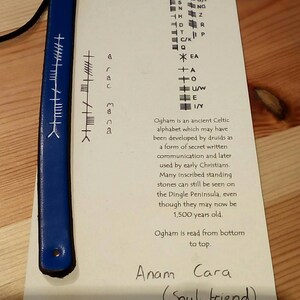 N
ND
H
Z
D
R
T
P
C/K
Q
EA
A
O
U/W
E
I/Y
a
r
a
c
m
a
n
a
Ogham is an ancient Celtic
alphabet which may have
been developed by druids as
a form of secret written
communication and later
used by early Christians.
Many inscribed standing
stones can still be seen on
the Dingle Peninsula, even
though they may now be
1,500 years old.
Ogham is read from bottom
to top.
Anam Cara
(Soul friend)